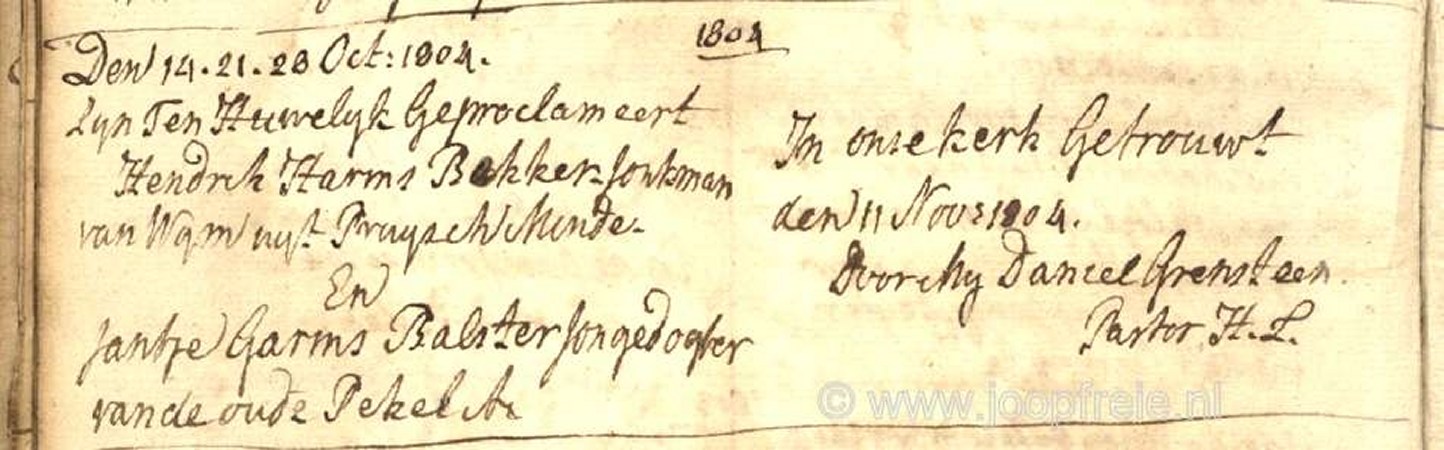 1804
Den 14. 21. 28 Oct: 1804.
Zyn Ten Huwelyk Geproclameert
Hendrik Harms Bekker Jonkman
van Wym uyst Pruysch Minde.
En
Jantje Garms Balster Jongedogter
van de oude Pekel A:
In onse kerk Getrouwt
den 11 Nov: 1804.
Door My Daniel Grensteen.
Pastor H. L.
© www.joopfreie.nl